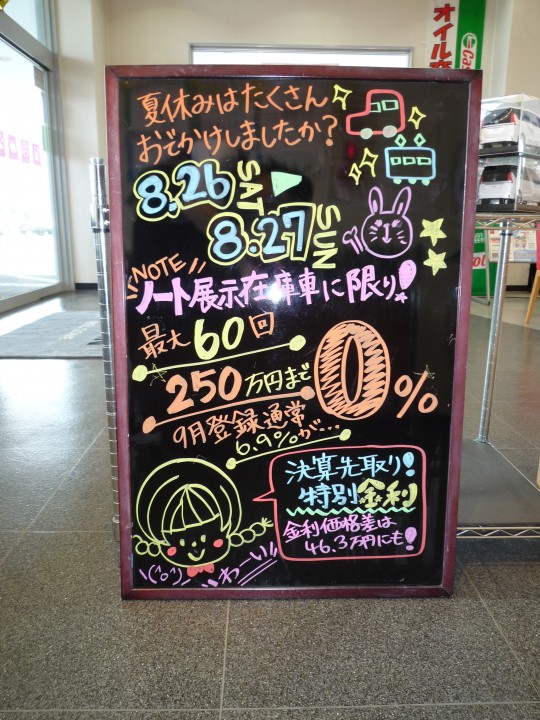 夏休みはたくさん
おでかけしましたか?
8.26 SAT
8.27 SUN
NOTE
ノート展示在庫車に限り!
最大60回
250万円まで
0%
9月登録通常
6.9%が...
決算先取り!
特別金利
金利価格差は
46.3万円にも!
\(^o^)/
わーい
オイル